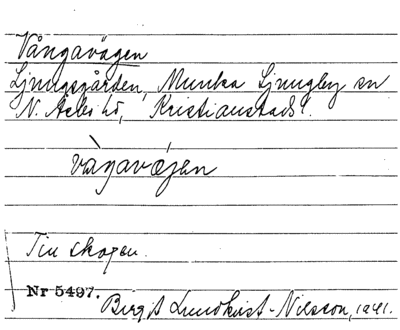 Vångavägen
Ljungsgården, Munka Ljungby sn
N. Åsbo hd, Kristianstads l.
vàgavæ̀jen
Till skogen.
Nr 5497.
Birgit Lundkvist-Nilsson, 1941.